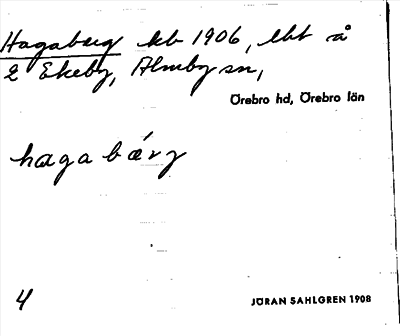 Hagaberg kb 1906, lht å
2 Ekeby, Almby sn,
Örebro hd, Örebro län
hagabärj
4
JÖRAN SAHLGREN 1908